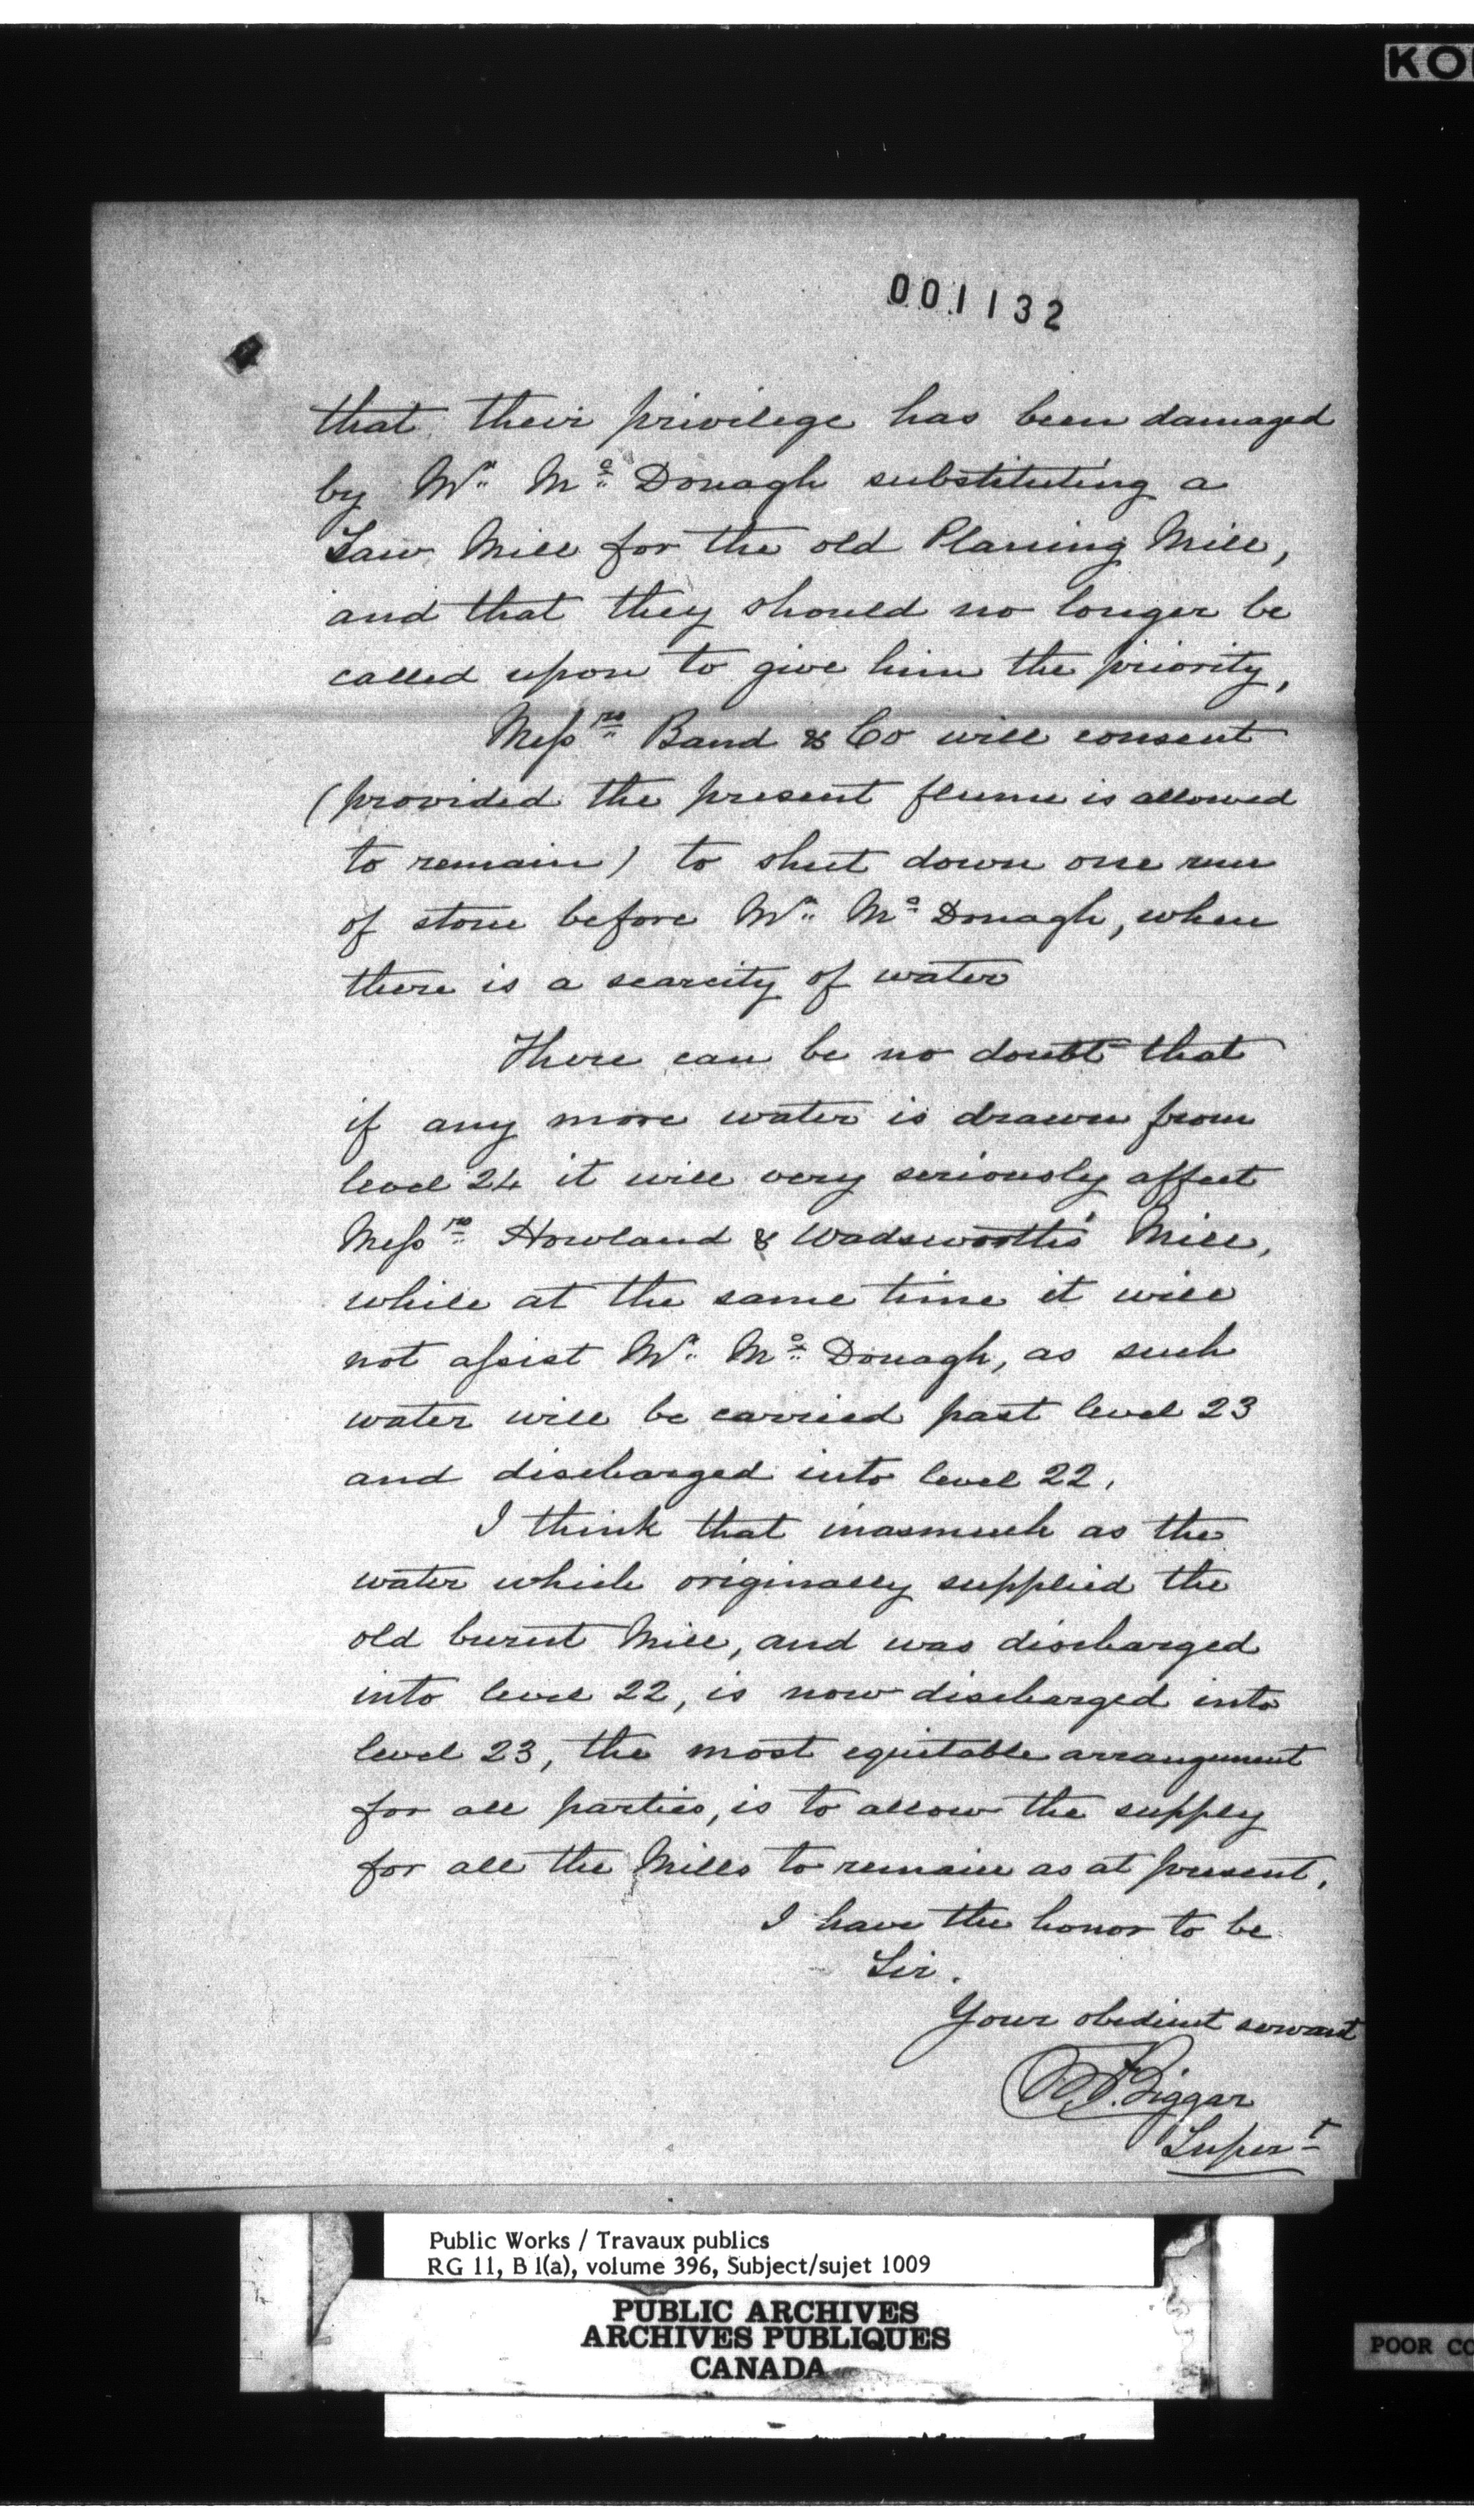 KO
001132
that their privilege has been damaged
by Mr. Mc. Donagh substituting a
Saw Mill for the old Planing Mill,
and that they should no longer be
called upon to give him the priority,
Messrs. Band & Co will consent
(provided the present flume is allowed
to remain) to shut down one run
of stone before Mr. Mc Donagh, when
there is a scarcity of water
There can be no doubt that
if any more water is drawn from
level 24 it will very seriously affect
Messrs. Howland & Wadsworth's Mill,
while at the same time it will
not assist Mr. Mc. Donagh, as such
water will be carried past level 23
and discharged into level 22.
I think that inasmuch as the
water which originally supplied the
old burnt Mill, and was discharged
into level 22, is now discharged into
level 23, the most equitable arrangement
for all parties, is to allow the supply
for all the Mills to remain as at present.
I have the honor to be
Sir.
Your obedient servant
Biggar
Supert
Public Works / Travaux publics
RG 11, B 1(a), volume 396, Subject/sujet 1009
PUBLIC ARCHIVES
ARCHIVES PUBLIQUES
CANADA
POOR CO